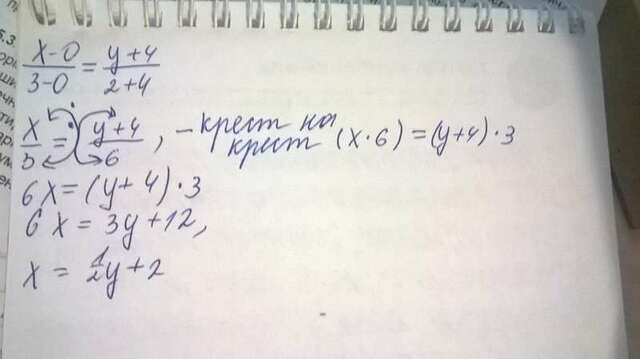 x-0/3-0 = y+4/2+4
x/3 = y+4/6, - крест на крест (x·6) = (y+4)·3
6x = (y+4)·3
6x = 3y+12,
x = 1/2y+2